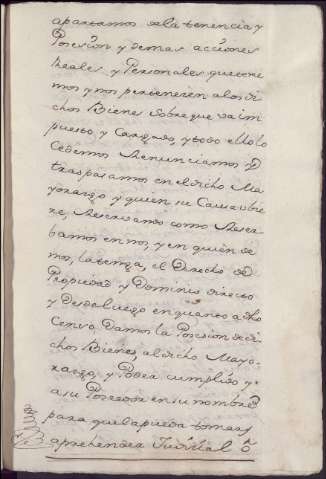 apartamos de la tenencia y
Poseción y demas acciones
Reales y Personales que tene
mos y nos pertenecen a los di
chos Bienes sobre que va im
puesto, y Cargado, y todo ello lo
Cedemos Renunciamos y
traspasamos en el dicho Ma
yorazgo y quien su Causa ubie
re, Reservando como Reser
bamos en nos, y en quien de
nos, la tenga, el Derecho de
Propiedad y Dominio directo
y desde luego en quanto a dho
Censo Damos la Posecion de di
chos Bienes, al dicho Mayo
razgo, y Poder cumplido y
a su Posedor en su nombre
para que la pueda tomar y
aprehender Judicial ô